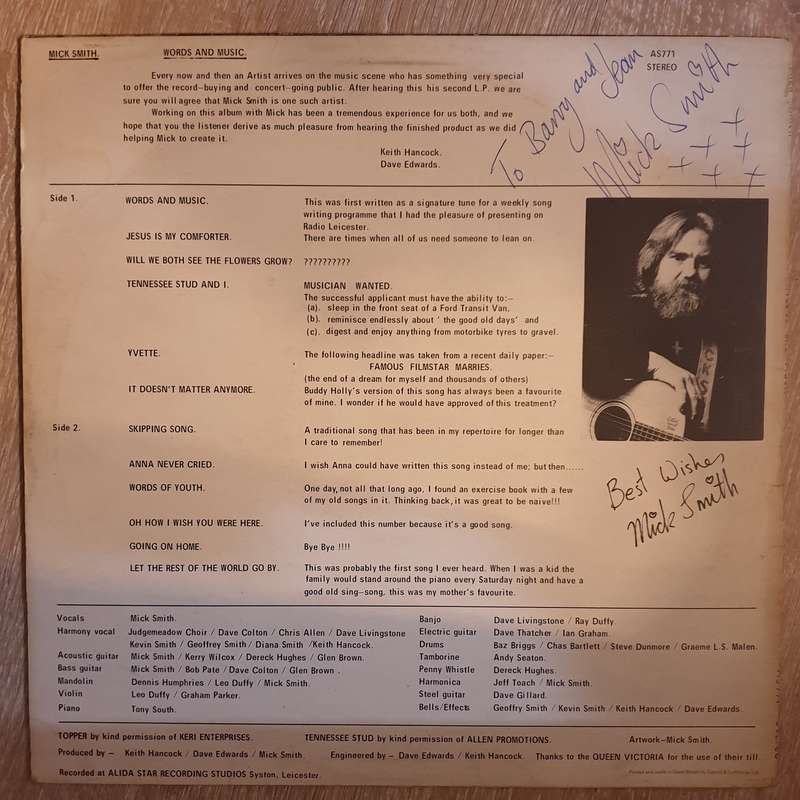 MICK SMITH.
WORDS AND MUSIC.
AS771
STEREO
Every now and then an Artist arrives on the music scene who has something very special
to offer the record-buying and concert-going public. After hearing this his second L.P. we are
sure you will agree that Mick Smith is one such artist.
Working on this album with Mick has been a tremendous experience for us both, and we
hope that you the listener derive as much pleasure from hearing the finished product as we did
helping Mick to create it.
Keith Hancock.
Dave Edwards.
To Barry and Jean
Mick Smith
Side 1.
WORDS AND MUSIC. This was first written as a signature tune for a weekly song
writing programme that I had the pleasure of presenting on
Radio Leicester.
JESUS IS MY COMFORTER. There are times when all of us need someone to lean on.
WILL WE BOTH SEE THE FLOWERS GROW? ??????????
TENNESSEE STUD AND I. MUSICIAN WANTED.
The successful applicant must have the ability to:-
(a). sleep in the front seat of a Ford Transit Van,
(b). reminisce endlessly about ' the good old days' and
(c). digest and enjoy anything from motorbike tyres to gravel.
YVETTE. The following headline was taken from a recent daily paper:-
FAMOUS FILMSTAR MARRIES.
(the end of a dream for myself and thousands of others)
IT DOESN'T MATTER ANYMORE. Buddy Holly's version of this song has always been a favourite
of mine. I wonder if he would have approved of this treatment?
Side 2.
SKIPPING SONG. A traditional song that has been in my repertoire for longer than
I care to remember!
ANNA NEVER CRIED. I wish Anna could have written this song instead of me; but then......
WORDS OF YOUTH. One day, not all that long ago, I found an exercise book with a few
of my old songs in it. Thinking back, it was great to be naive!!!
OH HOW I WISH YOU WERE HERE. I've included this number because it's a good song.
GOING ON HOME. Bye Bye !!!!
LET THE REST OF THE WORLD GO BY. This was probably the first song I ever heard. When I was a kid the
family would stand around the piano every Saturday night and have a
good old sing-song, this was my mother's favourite.
Best Wishes
Mick Smith
Vocals Mick Smith.
Harmony vocal Judgemeadow Choir / Dave Colton / Chris Allen / Dave Livingstone
Kevin Smith / Geoffrey Smith / Diana Smith /Keith Hancock.
Acoustic guitar Mick Smith / Kerry Wilcox / Dereck Hughes / Glen Brown.
Bass guitar Mick Smith / Bob Pate / Dave Colton / Glen Brown .
Mandolin Dennis Humphries / Leo Duffy / Mick Smith.
Violin Leo Duffy / Graham Parker.
Piano Tony South.
Banjo Dave Livingstone / Ray Duffy.
Electric guitar Dave Thatcher / Ian Graham.
Drums Baz Briggs / Chas Bartlett / Steve Dunmore / Graeme L.S. Malen.
Tamborine Andy Seaton.
Penny Whistle Dereck Hughes.
Harmonica Jeff Toach / Mick Smith.
Steel guitar Dave Gillard.
Bells/Effects Geoffry Smith / Kevin Smith / Keith Hancock / Dave Edwards.
TOPPER by kind permission of KERI ENTERPRISES. TENNESSEE STUD by kind permission of ALLEN PROMOTIONS. Artwork-Mick Smith.
Produced by - Keith Hancock / Dave Edwards / Mick Smith. Engineered by - Dave Edwards / Keith Hancock. Thanks to the QUEEN VICTORIA for the use of their till
Recorded at ALIDA STAR RECORDING STUDIOS Syston, Leicester.